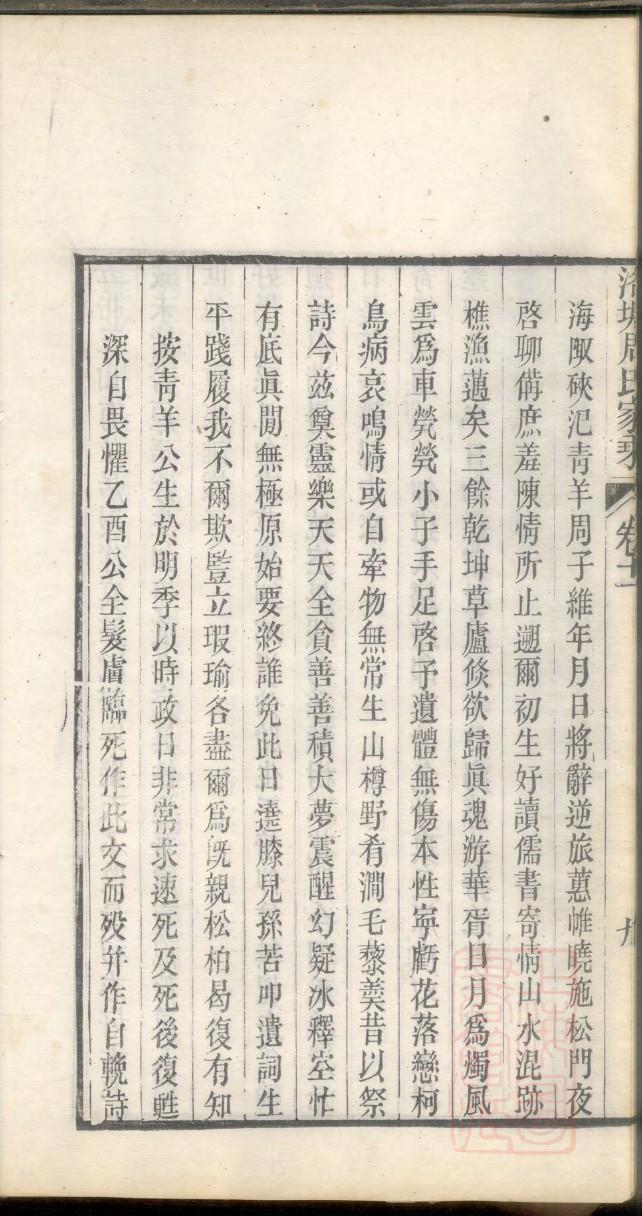 洛塘周氏家乘 卷十二 九
海陬硤汜青羊周子維年月日將辭逆旅蕙帷曉施松門夜
啓聊備庶羞陳情所止遡爾初生好讀儒書寄情山水混跡
樵漁邁矣三餘乾坤草廬倐欲歸眞魂游華胥日月爲燭風
雲爲車煢煢小子手足啓予遺體無傷本性寧虧花落戀柯
鳥病哀鳴情或自牽物無常生山樽野肴澗毛藜羮昔以祭
詩今兹奠靈樂天天全貪善善積大夢震醒幻疑冰釋空忙
有底眞閒無極原始要終誰免此日遶膝兒孫苦叩遺詞生
平踐履我不爾欺豎立瑕瑜各盡爾爲旣親松柏曷復有知
按青羊公生於明季以時政日非常求速死及死後復甦
深自畏懼乙酉公全髮膚臨死作此文而殁并作自輓詩